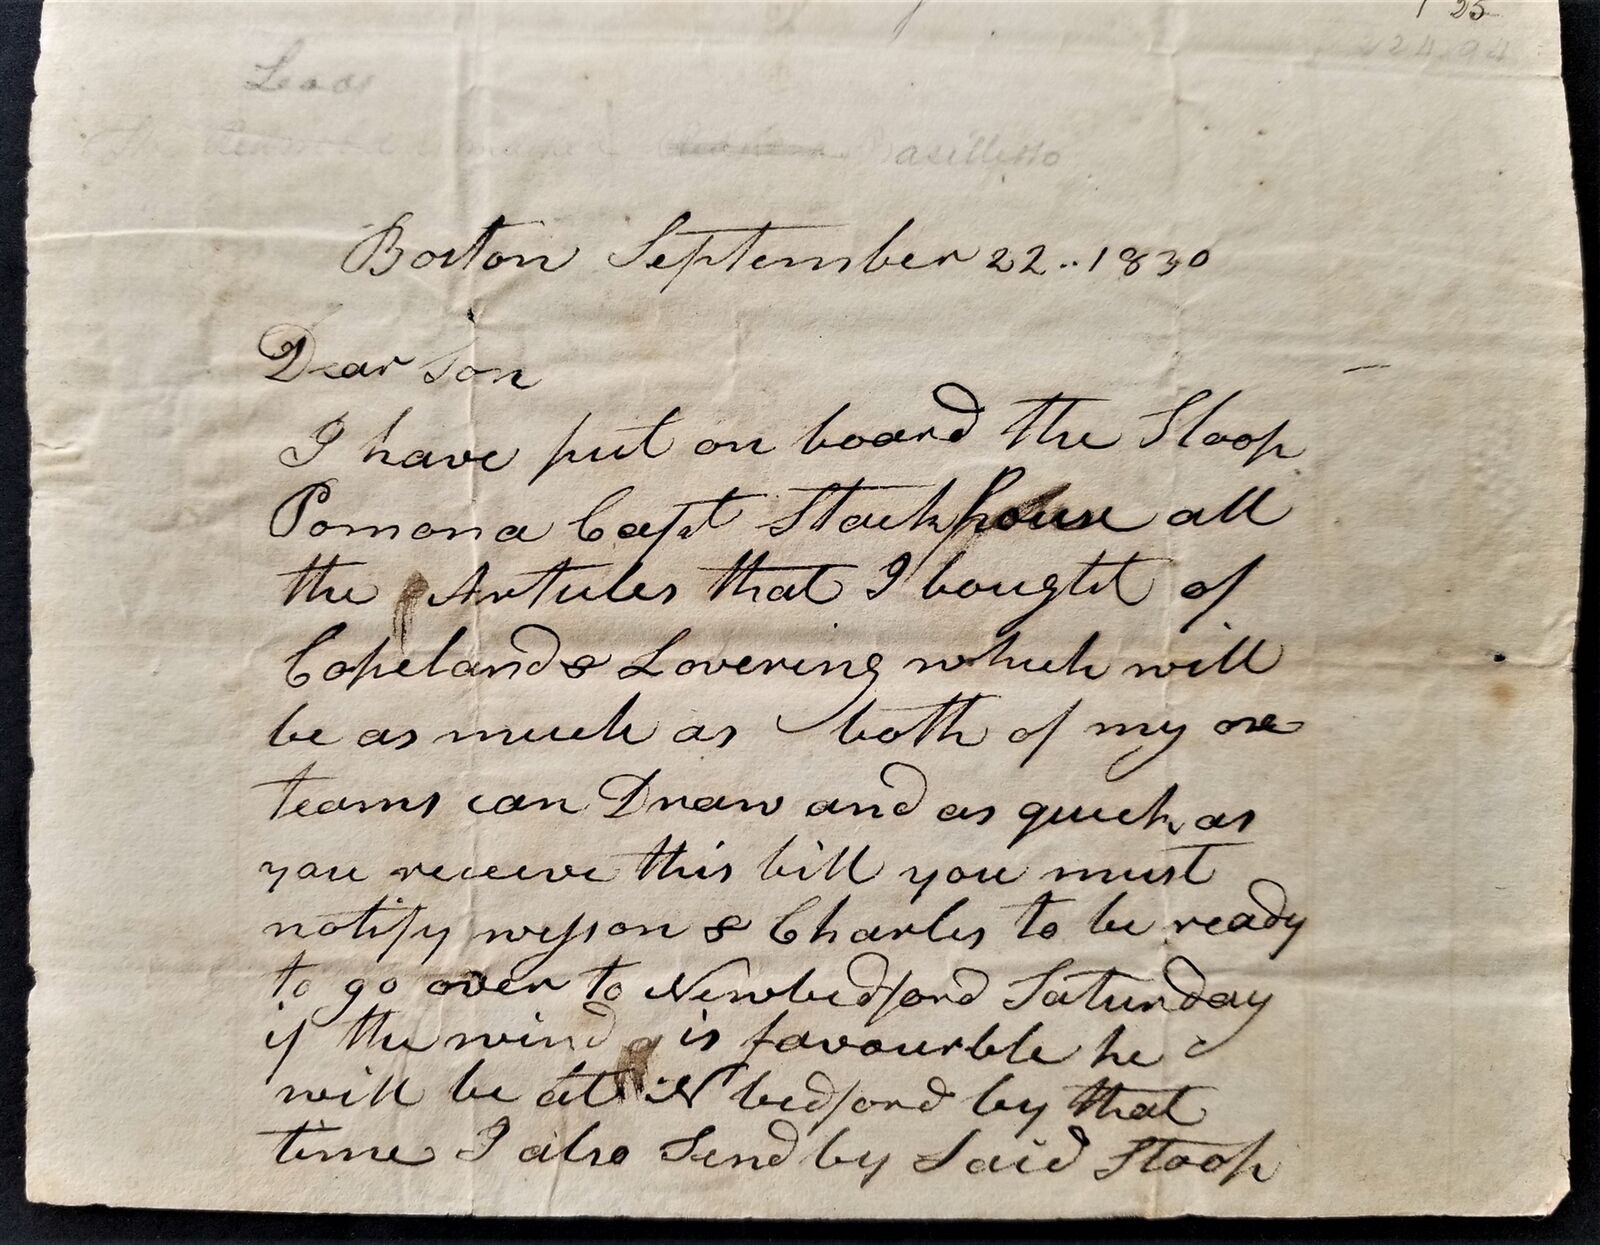 1 25
224.94
Boston September 22..1830
Dear Son
I have put on board the Sloop
Pomona Capt Stackhouse all
the Articles that I bought of
Copeland & Lovering which will
be as much as both of my oxe
teams can Draw and as quick as
you receive this bill you must
notify wesson & Charles to be ready
to go over to Newbedford Saturday
if the wind is favourble he
will be at N bedford by that
time I also Send by Said Sloop